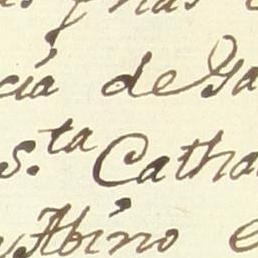 cia de Ga
S.ta Catha
Abino e